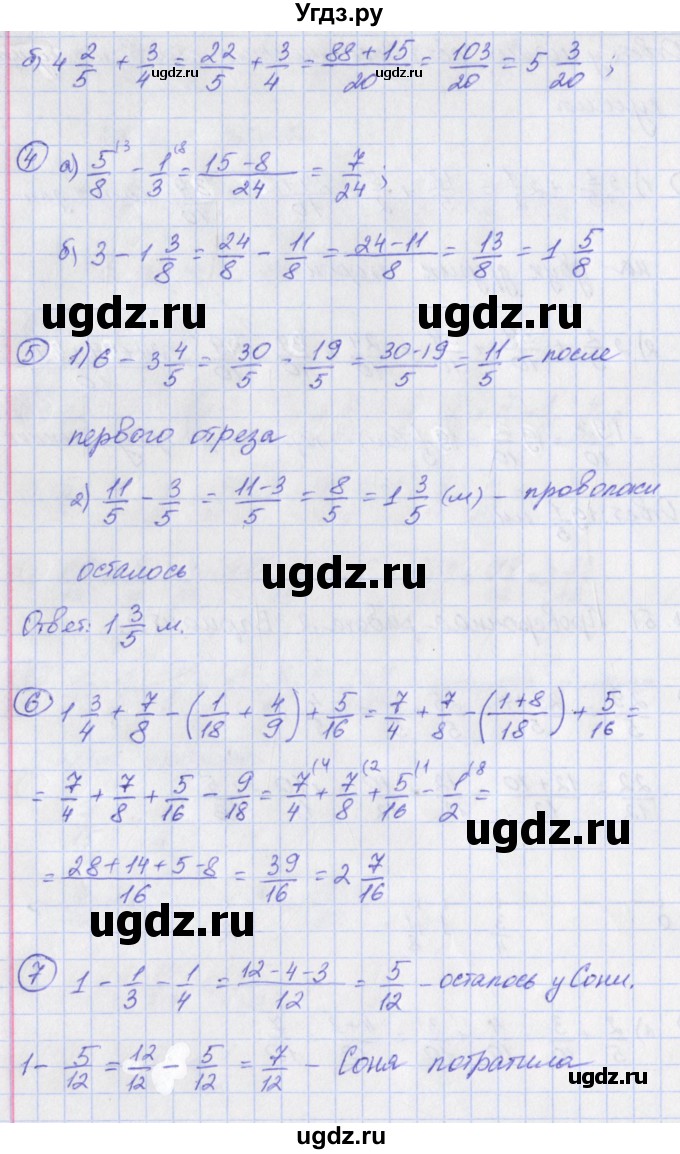 Угдз.ру
б) 4 2/5 + 3/4 = 22/5 + 3/4 = (88+15)/20 = 103/20 = 5 3/20 ;
ugdz.ru ugdz.ru
④ а) 5/8 (3 - 1/3 (8 = (15-8)/24 = 7/24 ;
б) 3 - 1 3/8 = 24/8 - 11/8 = (24-11)/8 = 13/8 = 1 5/8
ugdz.ru ugdz.ru
⑤ 1) 6 - 3 4/5 = 30/5 - 19/5 = (30-19)/5 = 11/5 - после
первого отреза
2) 11/5 - 3/5 = (11-3)/5 = 8/5 = 1 3/5 (м) - проволоки
осталось
ugdz.ru
Ответ: 1 3/5 м.
⑥ 1 3/4 + 7/8 - (1/18 + 4/9) + 5/16 = 7/4 + 7/8 - ((1+8)/18) + 5/16 =
= 7/4 + 7/8 + 5/16 - 9/18 = 7/4 (4 + 7/8 (2 + 5/16 (1 - 1/2 (8 =
ugdz.ru
= (28+14+5-8)/16 = 39/16 = 2 7/16
ugdz.ru
⑦ 1 - 1/3 - 1/4 = (12-4-3)/12 = 5/12 - осталось у Сони.
1 - 5/12 = 12/12 - 5/12 = 7/12 - Соня потратила
ugdz.ru
ugdz.ru